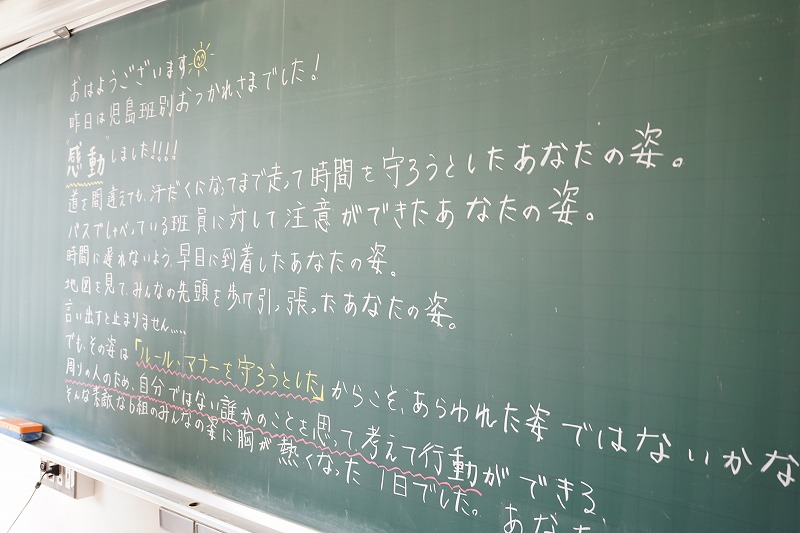 おはようございます
昨日は児島班別おつかれさまでした！
"感動"しました!!!!
道を間違えても、汗だくになってまで走って時間を守ろうとしたあなたの姿。
バスでしゃべっている班員に対して注意ができたあなたの姿。
時間に遅れないよう、早目に到着したあなたの姿。
地図を見て、みんなの先頭を歩いて引っ張ったあなたの姿。
言い出すと止まりません……
でも、その姿は「ルール・マナーを守ろうとした」からこそ、あらわれた姿ではないかな
周りの人のため、自分ではない誰かのことを思って考えて行動ができる、
そんな素敵な6組のみんなの姿に胸が熱くなった1日でした。